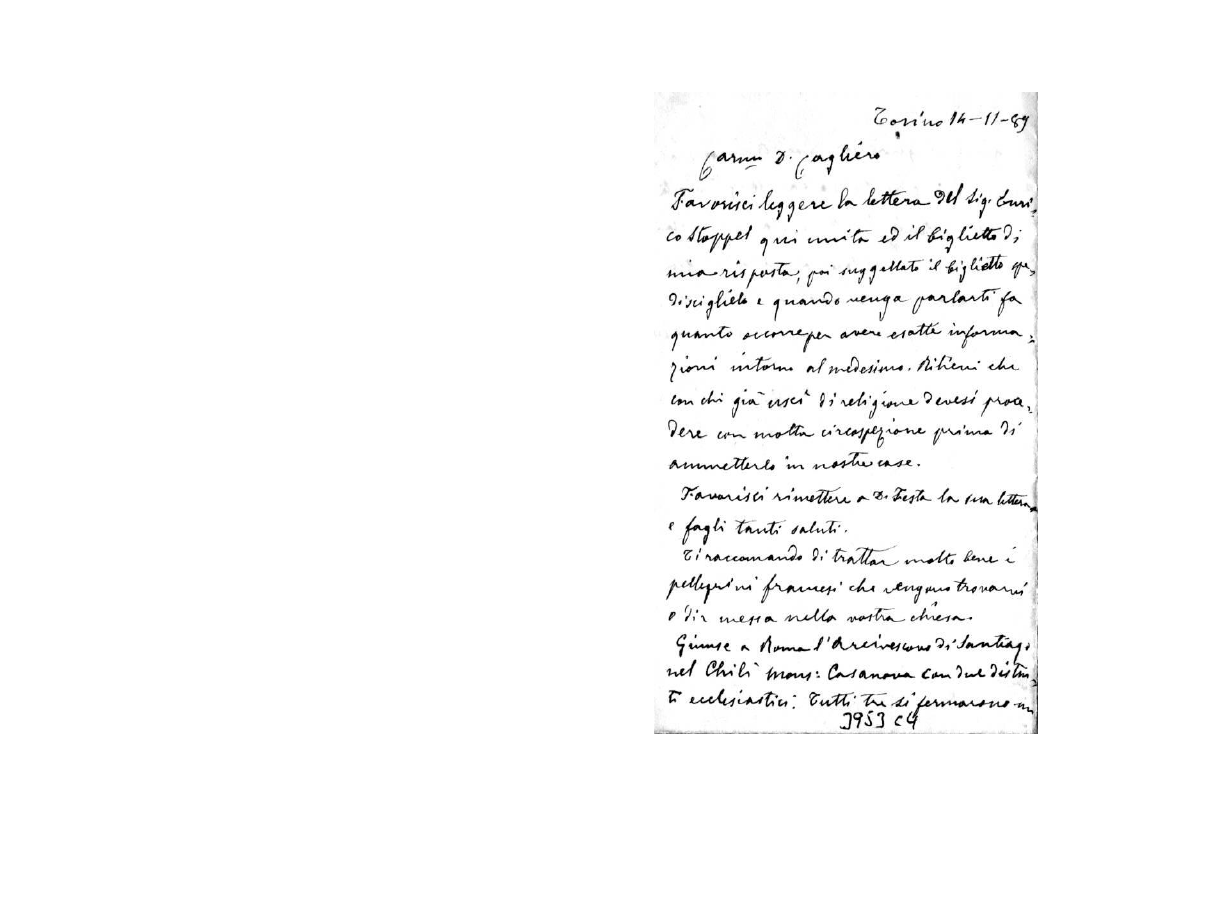 Torino 14-11-89
Carmo D. Cagliero
Favorisci leggere la lettera del Sig. Enri,
co Stoppel qui unita ed il biglietto di
mia risposta; poi suggellato il biglietto spe,
disciglielo e quando venga parlarti fa
quanto occorre per avere esatte informa,
zioni intorno al medesimo. Ritieni che
con chi già uscì di religione devesi proce,
dere con molta circospezione prima di
ammetterlo in nostre case.
Favorisci rimettere a D. Festa la sua lettera
e fagli tanti saluti.
Ti raccomando di trattar molto bene i
pellegrini francesi che vengono trovarvi
o dir messa nella vostra chiesa.
Giunse a Roma l'Arcivescovo di Santiago
nel Chilì mons: Casanova con due distin,
ti ecclesiastici. Tutti tre si fermarono un
3953 C4